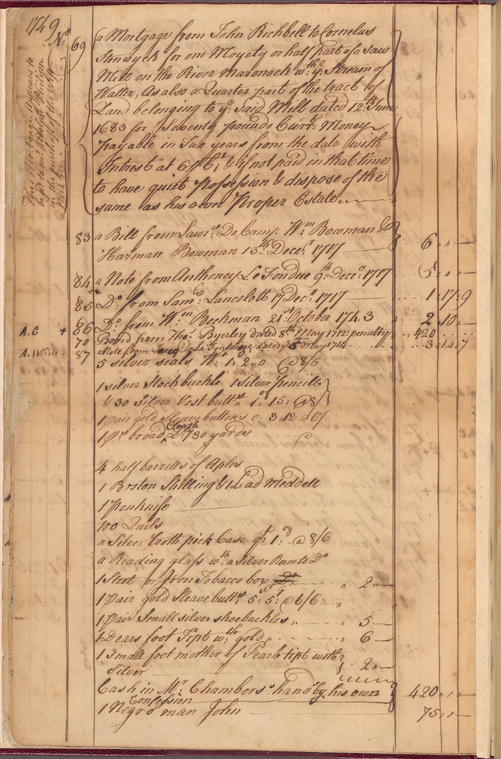 1749
No
69 a Mortgage from John Richbell to Cornelus
for one Moyety or half part of a Saw
Mill on the River Mamonack wth ye Stream of
Watter, As also a Quarter part of the tract of
Land belonging to ye Said Mill dated 12th June
1683 for Seventy pounds Currt Money
payable in Two years from the date with
Intrest at 6 pCt; & if not paid in that time
to have quiet Possession & dispose of the
same as his own Proper Estate
83 a Bill from Lawrs De Camp Wm Bowman &
Harman Bowman 13th Decr 1717 6
84 a Note from Anthoney Le Fondue 9th Decr 1717 5
85 Do from Saml Lancelott 17 Decr 1717 1 : 17 : 9
A.C + 86 Do from Wm Beekman 21st October 1743 2 10
70 Bond from Thos Byerley dated 8th May 1712 penalty 420
A. White 87 a Note from dated May 1714 3 : 14 : 7
5 silver seals Wt 1 : 2 : 0 @ 8/6
1 silver Stock buckle 1 silver pencill
& 30 silver Vest butts 1 : 15 : @ 8/
1 pair gold Sleave buttons 0 : 3 12 @
1 ps broad Cloath Do 7 30 yards
4 half barrells of Aples
1 Boston Shilling & 1 Lead Meddell
1 penknife
100 Quils
a Silver tooth pick Case qt 1 : @ 8/6
a Reading glass wth a silver Do
1 Steel or Iron Tobacco box 2
1 pair gold Sleave butts 5 : 5 : @ 6/6
1 pair Small silver shoebuckles 5
2 Bears foot Tipt wth gold 6
1 Small foot mother of Pearl tipt with
Silver 2
Cash in Mr Chambers's hand by his own
Confession 420
1 Negro man John 75